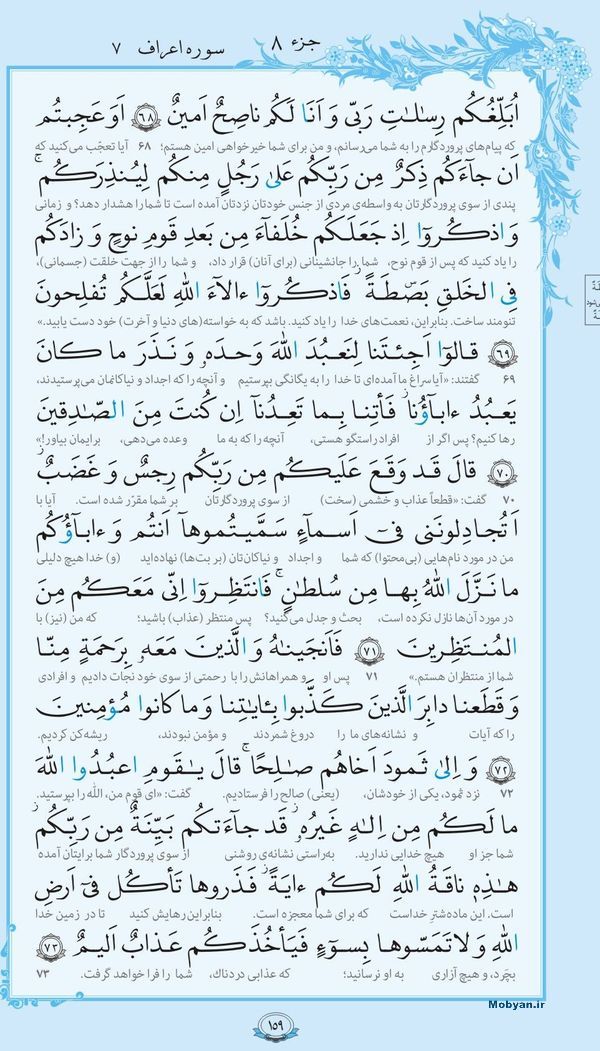 جزء ۸
سوره اعراف ۷
اُبَلِّغُکُم رِسالٰاتِ رَبّی وَ اَنَا لَکُم ناصِحٌ اَمینٌ ﴿۶۸﴾ اَوَ عَجِبتُم
که پیام‌های پروردگارم را به شما می‌رسانم، و من برای شما خیرخواهی امین هستم؛ ۶۸ آیا تعجّب می‌کنید که
اَن جآءَکُم ذِکرٌ مِن رَبِّکُم عَلیٰ رَجُلٍ مِنکُم لِیُنذِرَکُم ۚ
پندی از سوی پروردگارتان به واسطه‌ی مردی از جنس خودتان نزدتان آمده است تا شما را هشدار دهد؟ و زمانی
وَ اذکُروٓا اِذ جَعَلَکُم خُلَفآءَ مِن بَعدِ قَومِ نوحٍ وَ زادَکُم
را یاد کنید که پس از قوم نوح، شما را جانشینانی (برای آنان) قرار داد، و شما را از جهت خلقت (جسمانی)،
فِی الخَلقِ بَصۜطَةً ۖ فَاذکُروٓا ءالآءَ اللهِ لَعَلَّکُم تُفلِحونَ
تنومند ساخت. بنابراین، نعمت‌های خدا را یاد کنید. باشد که به خواسته(های دنیا و آخرت) خود دست یابید.»
﴿۶۹﴾ قالوٓا اَجِئتَنا لِنَعبُدَ اللهَ وَحدَهٗ وَ نَذَرَ ما کانَ
۶۹ گفتند: «آیا سراغ ما آمده‌ای تا خدا را به یگانگی بپرستیم و آنچه را که اجداد و نیاکانمان می‌پرستیدند،
یَعبُدُ ءابآؤُنا ۖ فَأتِنا بِما تَعِدُنآ اِن کُنتَ مِنَ الصّادِقینَ
رها کنیم؟ پس اگر از افراد راستگو هستی، آنچه را که به ما وعده می‌دهی، برایمان بیاور!»
﴿۷۰﴾ قالَ قَد وَقَعَ عَلَیکُم مِن رَبِّکُم رِجسٌ وَ غَضَبٌ ۖ
۷۰ گفت: «قطعاً عذاب و خشمی (سخت) از سوی پروردگارتان بر شما مقرّر شده است. آیا با
اَتُجادِلونَنی فیٓ اَسمآءٍ سَمَّیتُموهآ اَنتُم وَ ءابآؤُکُم
من در مورد نام‌هایی (بی‌محتوا) که شما و اجداد و نیاکان‌تان (بر بت‌ها) نهاده‌اید (و) خدا هیچ دلیلی
ما نَزَّلَ اللهُ بِها مِن سُلطانٍ ۚ فَانتَظِروٓا اِنّی مَعَکُم مِنَ
در مورد آن‌ها نازل نکرده است، بحث و جدل می‌کنید؟ پس منتظر (عذاب) باشید؛ که من (نیز) با
المُنتَظِرینَ ﴿۷۱﴾ فَاَنجَیناهُ وَ الَّذینَ مَعَهٗ بِرَحمَةٍ مِنّا
شما از منتظران هستم.» ۷۱ پس او و همراهانش را با رحمتی از سوی خود نجات دادیم و افرادی
وَ قَطَعنا دابِرَ الَّذینَ کَذَّبوا بِـٔایاتِنا وَ ما کانوا مُؤمِنینَ
را که آیات و نشانه‌های ما را دروغ شمردند و مؤمن نبودند، ریشه‌کن کردیم.
﴿۷۲﴾ وَ اِلیٰ ثَمودَ اَخاهُم صالِحًا ۗ قالَ یاقَومِ اعبُدُوا اللهَ
۷۲ نزد ثمود، یکی از خودشان، (یعنی) صالح را فرستادیم. گفت: «ای قوم من، الله را بپرستید.
ما لَکُم مِن اِلٰهٍ غَیرُهٗ ۖ قَد جآءَتکُم بَیِّنَةٌ مِن رَبِّکُم ۖ
شما جز او هیچ خدایی ندارید. به‌راستی نشانه‌ی روشنی از سوی پروردگار شما برایتان آمده
هٰذِهٖ ناقَةُ اللهِ لَکُم ءایَةً ۖ فَذَروها تَأکُل فیٓ اَرضِ
است. این ماده‌شترِ خداست که برای شما معجزه است. بنابراین رهایش کنید تا در زمین خدا
اللهِ ۖ وَ لا تَمَسّوها بِسوٓءٍ فَیَأخُذَکُم عَذابٌ اَلیمٌ ﴿۷۳﴾
بچَرد، و هیچ آزاری به او نرسانید؛ که عذابی دردناک، شما را فرا خواهد گرفت. ۷۳
۱۵۹
Mobyan.ir